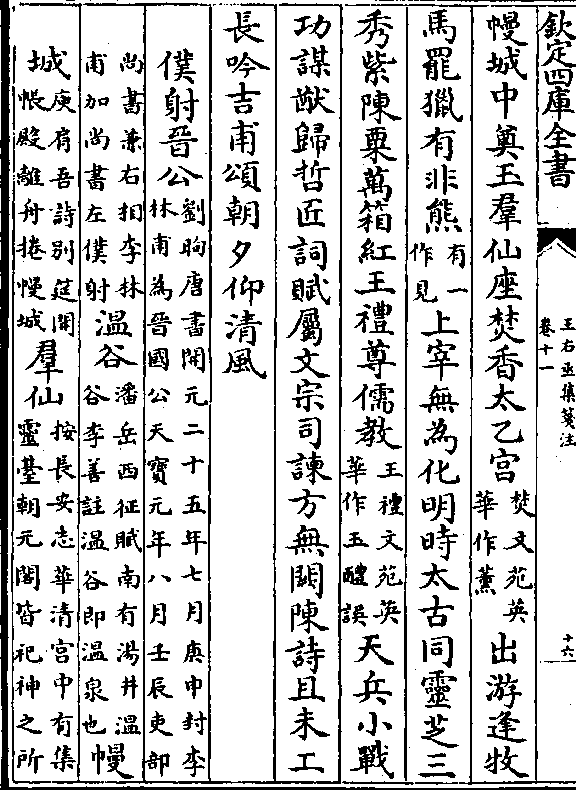 欽定四庫全書
王右丞集箋注
卷十一
十六
幔城中奠玉羣仙座焚香太乙宮焚文苑英華作薰出游逢牧
馬罷獵有非熊有一作見上宰無為化明時太古同靈芝三
秀紫陳粟萬箱紅王禮尊儒教王禮文苑英華作玉醴誤天兵小戰
功謀猷歸哲匠詞賦屬文宗司諫方無闕陳詩且未工
長吟吉甫頌朝夕仰清風
僕射晉公劉昫唐書開元二十五年七月庚申封李林甫為晉國公天寶元年八月壬辰吏部
尚書兼右相李林甫加尚書左僕射溫谷潘岳西征賦南有湯井溫谷李善註溫谷即溫泉也幔
城庾肩吾詩別筵開帳殿離舟捲幔城羣仙按長安志華清宮中有集靈臺朝元閣皆祀神之所